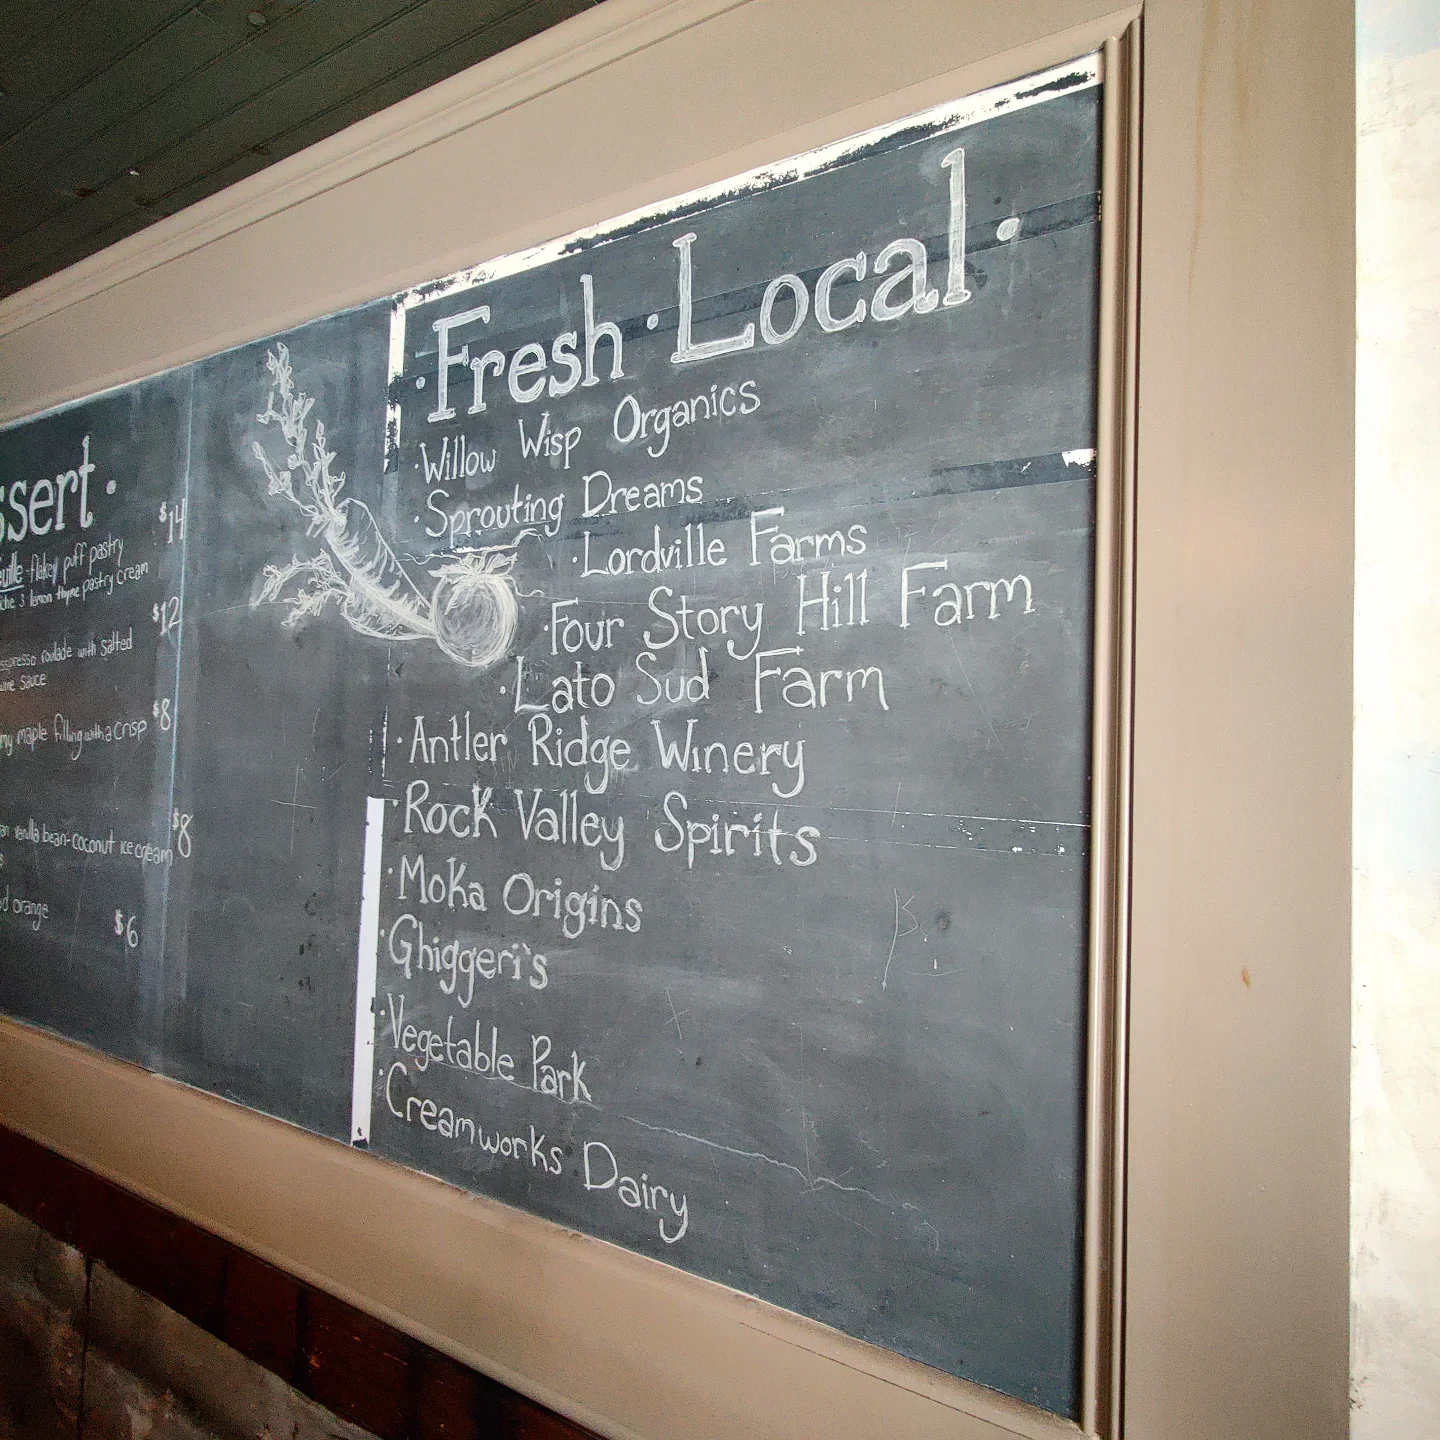 ssert.
$14
flakey puff pastry
lemon thyme pastry cream
$12
roulade with Salted
Sauce
$8
maple filling with a crisp
$8
vanilla bean-coconut ice cream
orange
$6
·Fresh·Local·
·Willow Wisp Organics
·Sprouting Dreams
·Lordville Farms
·Four Story Hill Farm
·Lato Sud Farm
·Antler Ridge Winery
·Rock Valley Spirits
·Moka Origins
·Ghiggeri's
·Vegetable Park
·Creamworks Dairy